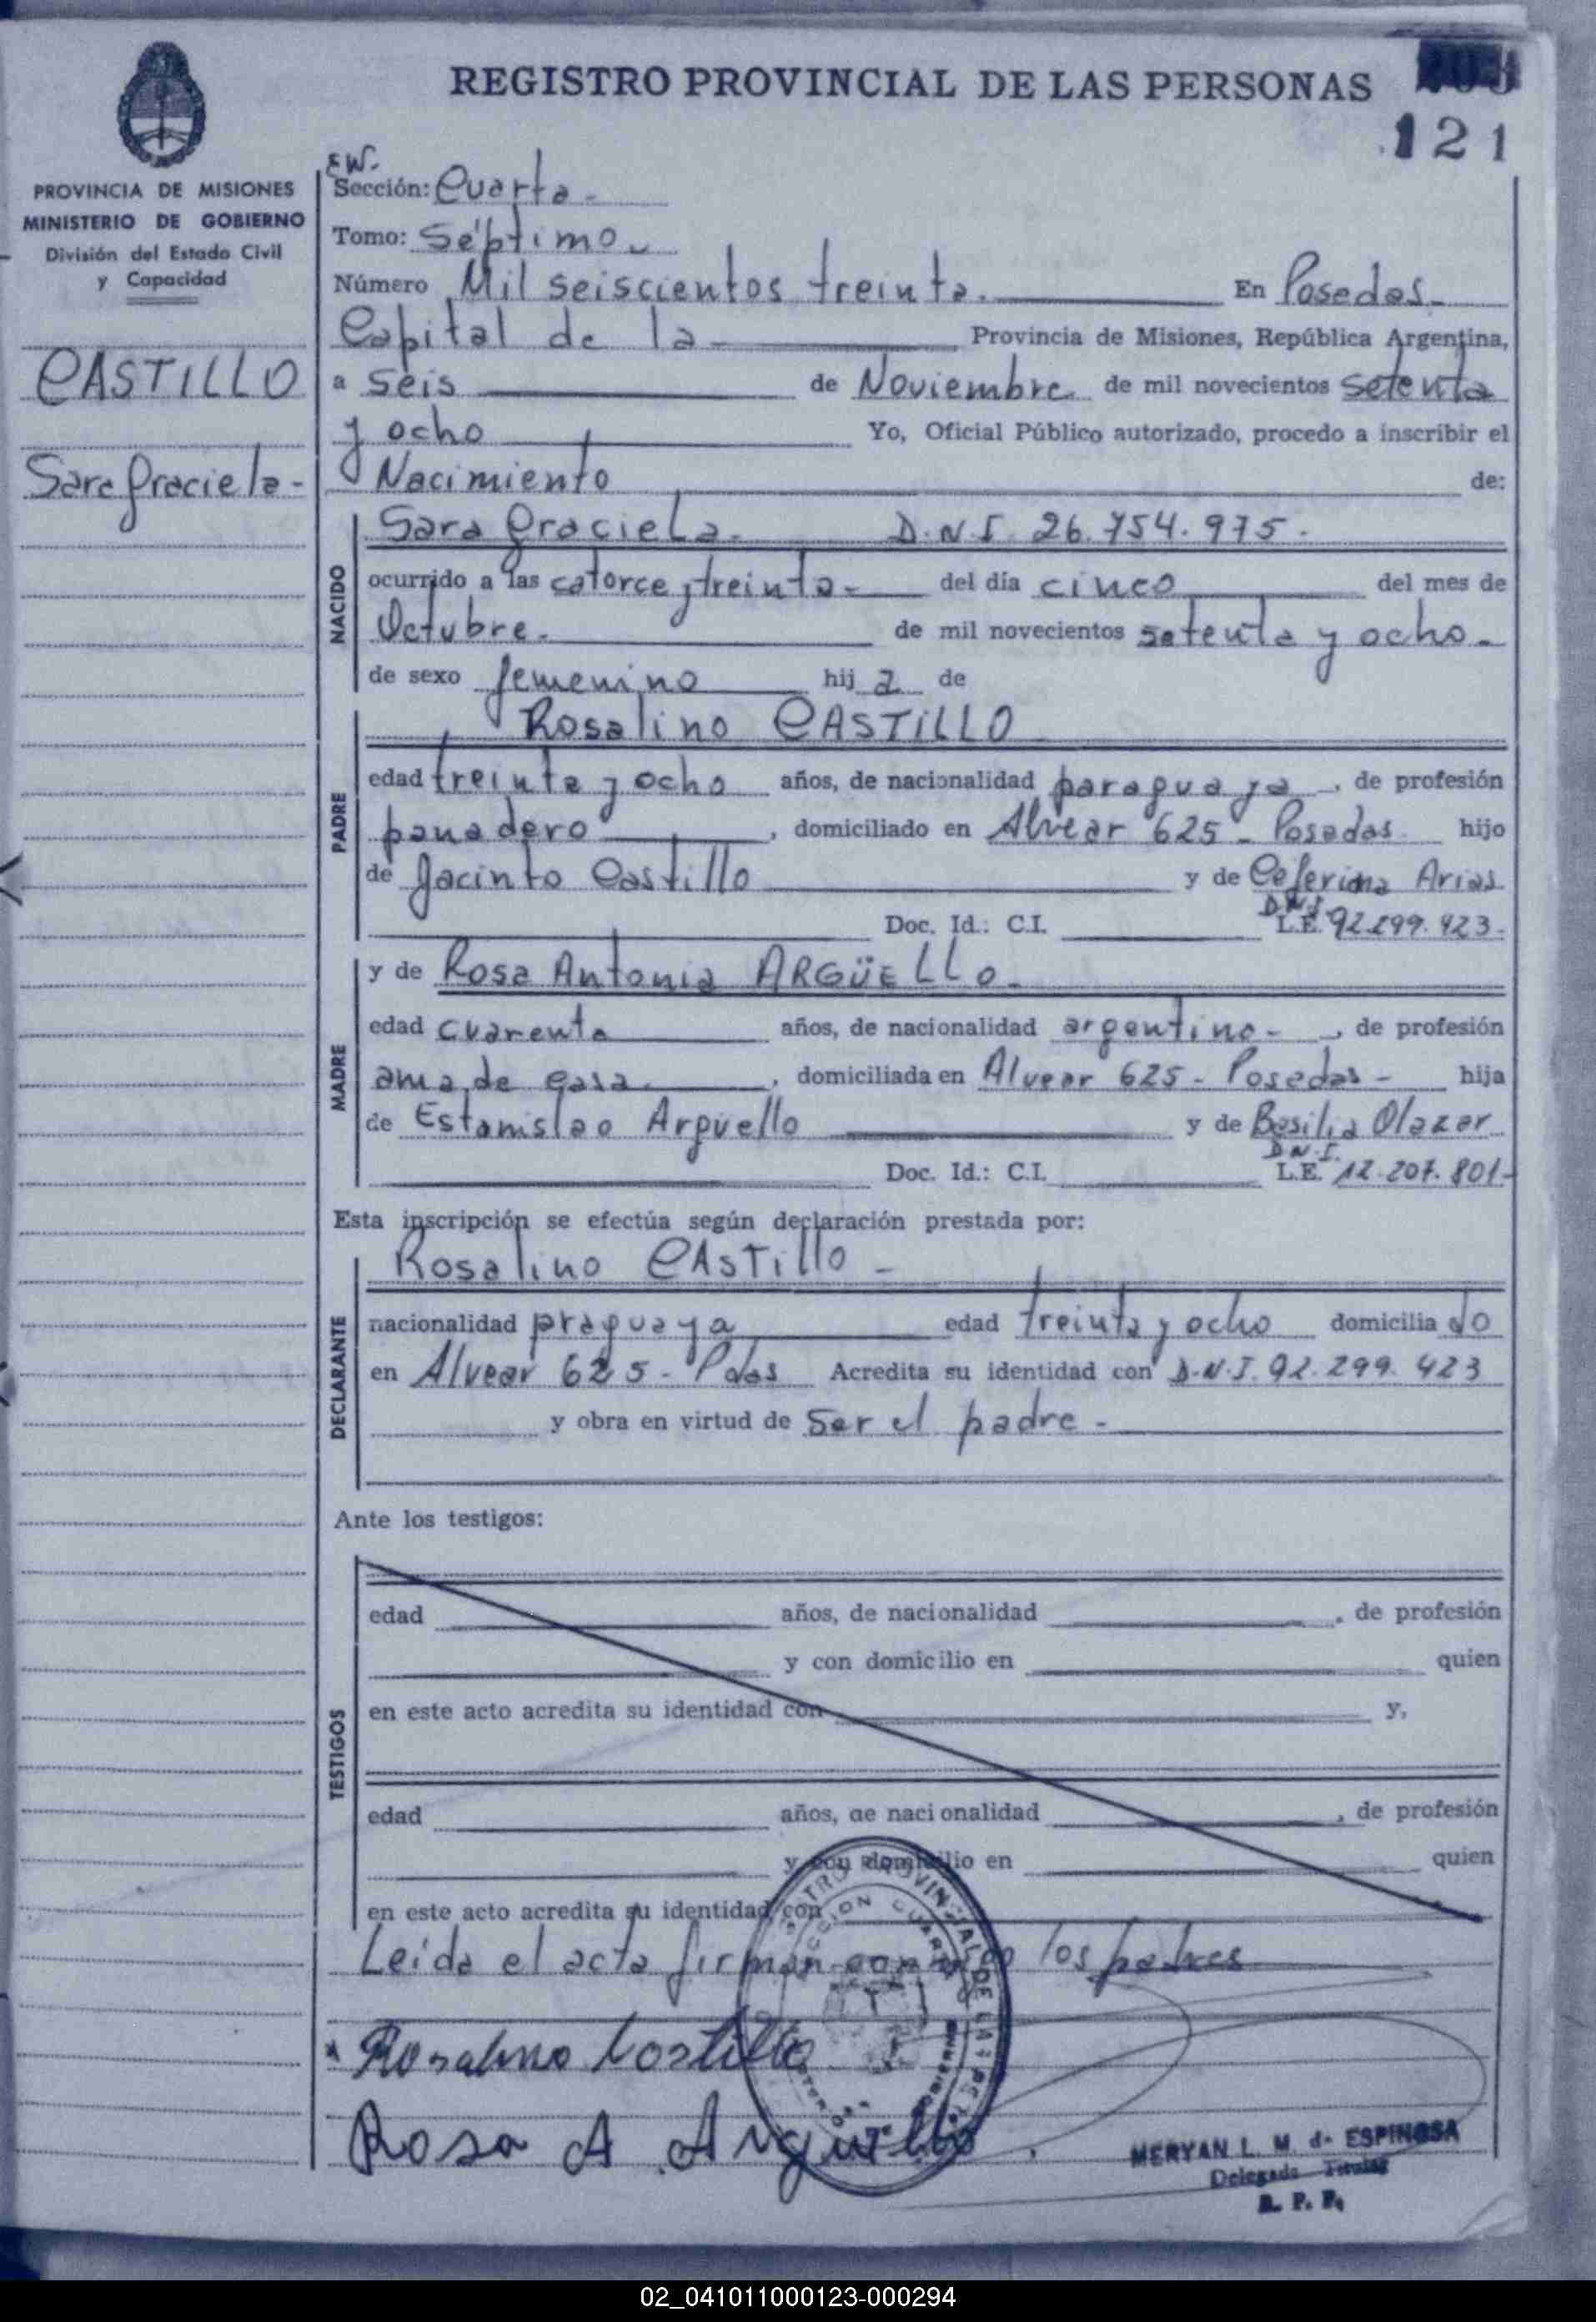 REGISTRO PROVINCIAL DE LAS PERSONAS
121
PROVINCIA DE MISIONES
MINISTERIO DE GOBIERNO
División del Estado Civil
y Capacidad
CASTILLO
Sara Graciela -
EW.
Sección: Cuarta -
Tomo: Séptimo
Número Mil seiscientos treinta. En Posadas
Capital de la Provincia de Misiones, República Argentina,
a seis de Noviembre de mil novecientos setenta
y ocho Yo, Oficial Público autorizado, procedo a inscribir el
Nacimiento de:
NACIDO
Sara Graciela. D.N.I. 26.754.975.
ocurrido a las catorce y treinta - del día cinco del mes de
Octubre. de mil novecientos setenta y ocho.
de sexo femenino hij a de
PADRE
Rosalino CASTILLO
edad treinta y ocho años, de nacionalidad paraguaya, de profesión
panadero, domiciliado en Alvear 625 - Posadas hijo
de Jacinto Castillo y de Ceferina Arias
D.N.I.
Doc. Id.: C.I. L.E. 92.299.423.
MADRE
y de Rosa Antonia ARGÜELLO.
edad cuarenta años, de nacionalidad argentina -, de profesión
ama de casa, domiciliada en Alvear 625 - Posadas - hija
de Estanislao Argüello y de Basilia Olazar
D.N.I.
Doc. Id.: C.I. L.E. 12.207.801-
Esta inscripción se efectúa según declaración prestada por:
DECLARANTE
Rosalino CASTillo -
nacionalidad praguaya edad treinta y ocho domicilia do
en Alvear 625 - Pdas Acredita su identidad con D.N.I. 92.299.423
y obra en virtud de ser el padre -
Ante los testigos:
TESTIGOS
edad años, de nacionalidad, de profesión
y con domicilio en quien
en este acto acredita su identidad con y,
edad años, de nacionalidad, de profesión
y con domicilio en quien
en este acto acredita su identidad con
Leída el acta firman conmigo los padres
Rosalino Castillo
Rosa A Arguello
MERYAN L. M. de ESPINOSA
Delegada Titular
R. P. P.
02_041011000123-000294